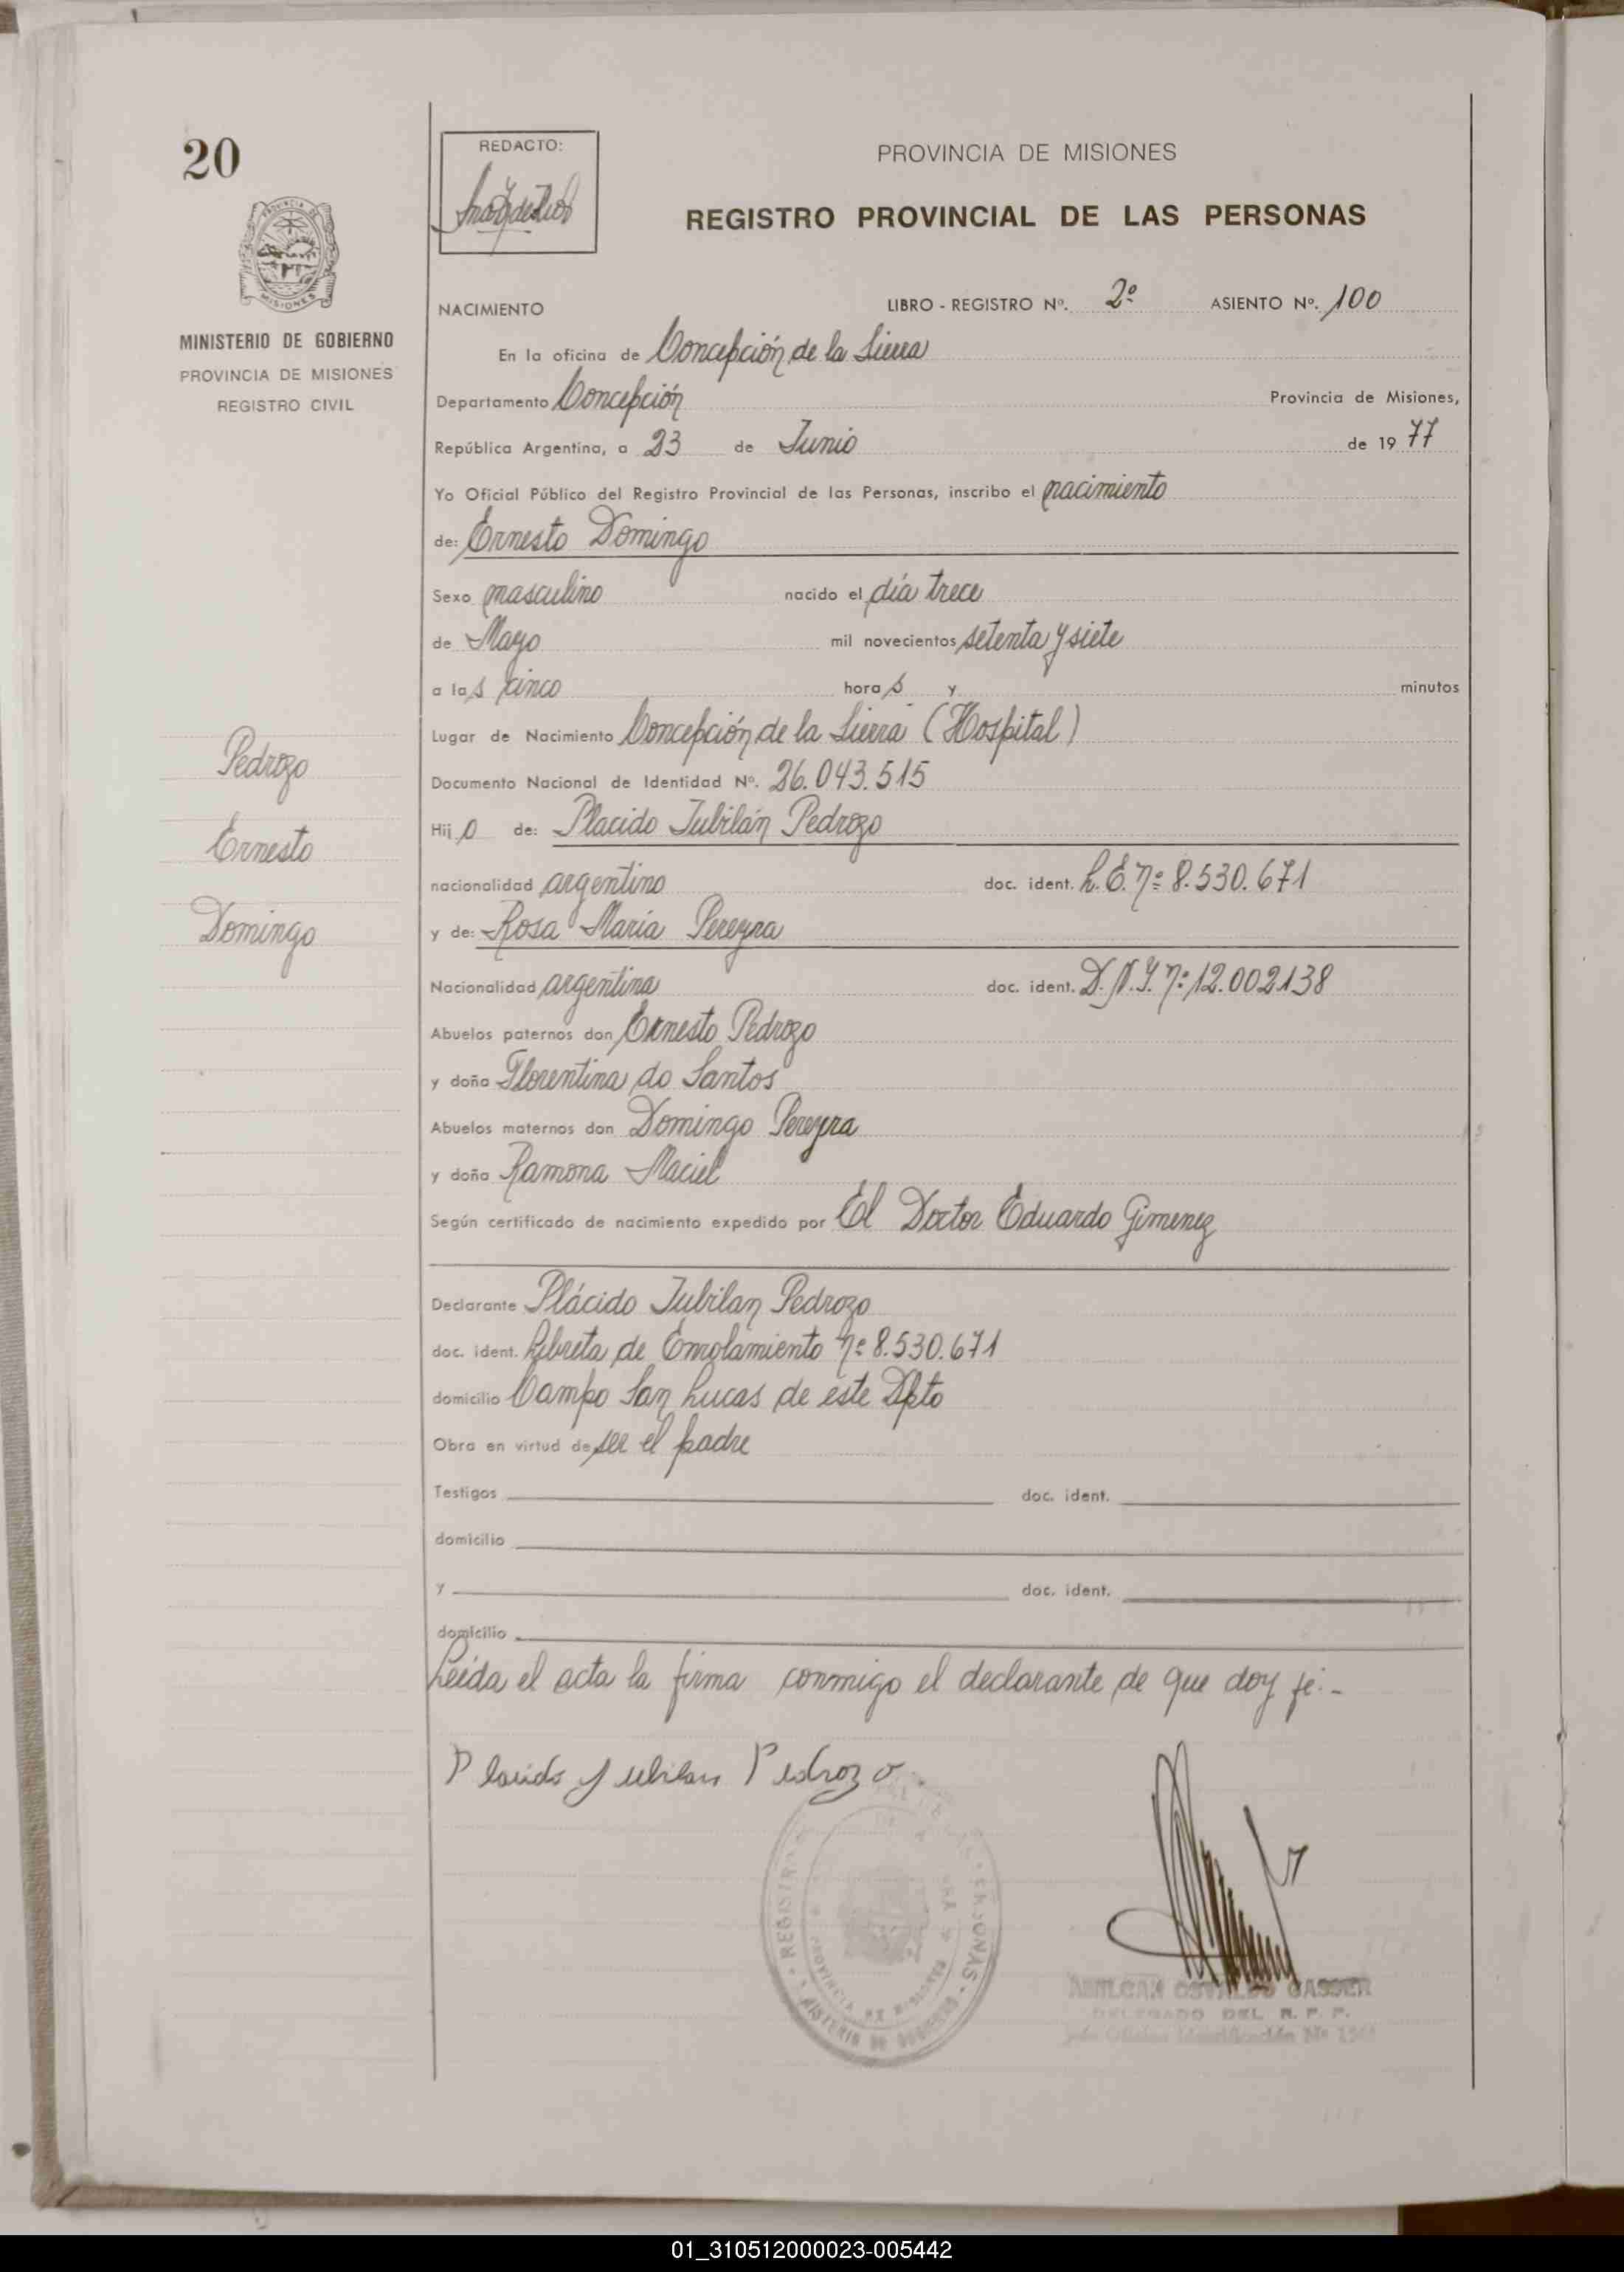 20
REDACTO:
PROVINCIA DE MISIONES
REGISTRO PROVINCIAL DE LAS PERSONAS
PROVINCIA DE
MISIONES
MINISTERIO DE GOBIERNO
PROVINCIA DE MISIONES
REGISTRO CIVIL
NACIMIENTO LIBRO - REGISTRO Nº. 2º ASIENTO Nº. 100
En la oficina de Concepción de la Sierra
Departamento Concepción Provincia de Misiones,
República Argentina, a 23 de Junio de 1977
Yo Oficial Público del Registro Provincial de las Personas, inscribo el nacimiento
de: Ernesto Domingo
Sexo masculino nacido el día trece
de Mayo mil novecientos setenta y siete
a las cinco horas y minutos
Lugar de Nacimiento Concepción de la Sierra (Hospital)
Documento Nacional de Identidad Nº. 26.043.515
Hijo de: Placido Jubilán Pedrozo
nacionalidad argentino doc. ident. L.E. nº 8.530.671
y de: Rosa María Pereyra
Nacionalidad argentina doc. ident. D.N.I. nº 12.002138
Abuelos paternos don Ernesto Pedrozo
y doña Florentina do Santos
Abuelos maternos don Domingo Pereyra
y doña Ramona Maciel
Según certificado de nacimiento expedido por El Doctor Eduardo Gimenez
Declarante Plácido Jubilan Pedrozo
doc. ident. Libreta de Enrolamiento nº 8.530.671
domicilio Campo San Lucas de este Dpto
Obra en virtud de ser el padre
Testigos doc. ident.
domicilio
y doc. ident.
domicilio
Leída el acta la firma conmigo el declarante de que doy fé.-
Pedrozo
Ernesto
Domingo
Placido Jubilan Pedrozo.
REGISTRO
PERSONAS
PROVINCIA DE MISIONES
MINISTERIO DE GOBIERNO
AMILCAR OSVALDO GASSER
DELEGADO DEL R. P. P.
01_310512000023-005442